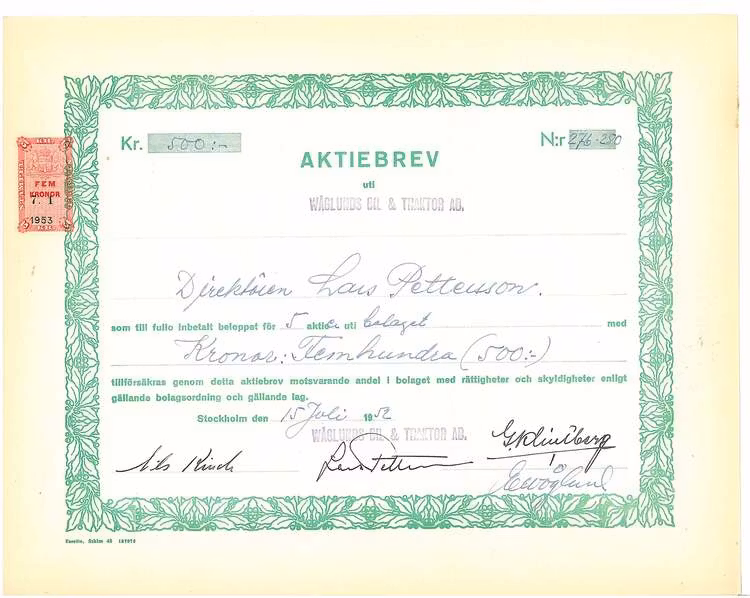 Kr. 500:-
N:r 276-280
AKTIEBREV
uti
WÅGLUNDS BIL & TRAKTOR AB.
FEM
KRONOR
7. 1
1953
Direktören Lars Pettersson.
som till fullo inbetalt beloppet för 5 aktier uti bolaget med
Kronor: Femhundra (500:-)
tillförsäkras genom detta aktiebrev motsvarande andel i bolaget med rättigheter och skyldigheter enligt
gällande bolagsordning och gällande lag.
Stockholm den 15 Juli 1952
WÅGLUNDS BIL & TRAKTOR AB.
Nils Lars Pettersson
E Wåglund